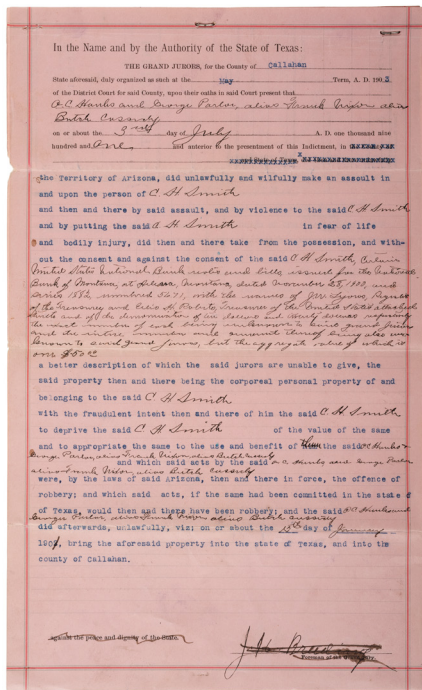 In the Name and by the Authority of the State of Texas:
THE GRAND JURORS, for the County of Callahan
State aforesaid, duly organized as such at the May Term, A. D. 1903
of the District Court for said County, upon their oaths in said Court present that
O C Hanks and George Parlor, alias Frank Nixon alias
Butch Cassidy
on or about the 3rd day of July A. D. one thousand nine
hundred and One and anterior to the presentment of this Indictment, in
the Territory of Arizona, did unlawfully and wilfully make an assault in
and upon the person of C H Smith
and then and there by said assault, and by violence to the said C H Smith
and by putting the said C H Smith in fear of life
and bodily injury, did then and there take from the possession, and with-
out the consent and against the consent of the said C H Smith, Certain
United States National Bank notes and bills issued for the National
Bank of Montana, at Helena, Montana, dated November
series 1882 numbered with the names of Register
of the Treasury and Treasurer of the United States attached
and of the denomination of
the exact number of said being unknown to said grand jurors
and the amount thereof being also
known to said grand jurors, but the aggregate value of which is
a better description of which the said jurors are unable to give, the
said property then and there being the corporeal personal property of and
belonging to the said C H Smith
with the fraudulent intent then and there of him the said C H Smith
to deprive the said C H Smith of the value of the same
and to appropriate the same to the use and benefit of the said O C Hanks &
George Parlor, alias Frank Nixon, alias Butch Cassidy
and which said acts by the said O C Hanks and George Parlor
alias Frank Nixon, alias Butch Cassidy
were, by the laws of said Arizona, then and there in force, the offence of
robbery; and which said acts, if the same had been committed in the state
of Texas, would then and there have been robbery; and the said O C Hanks and
George Parlor, alias Frank Nixon alias Butch Cassidy
did afterwards, unlawfully, viz; on or about the 15th day of January
190 , bring the aforesaid property into the state of Texas, and into the
county of Callahan.
against the peace and dignity of the State.
Foreman of the Grand Jury.